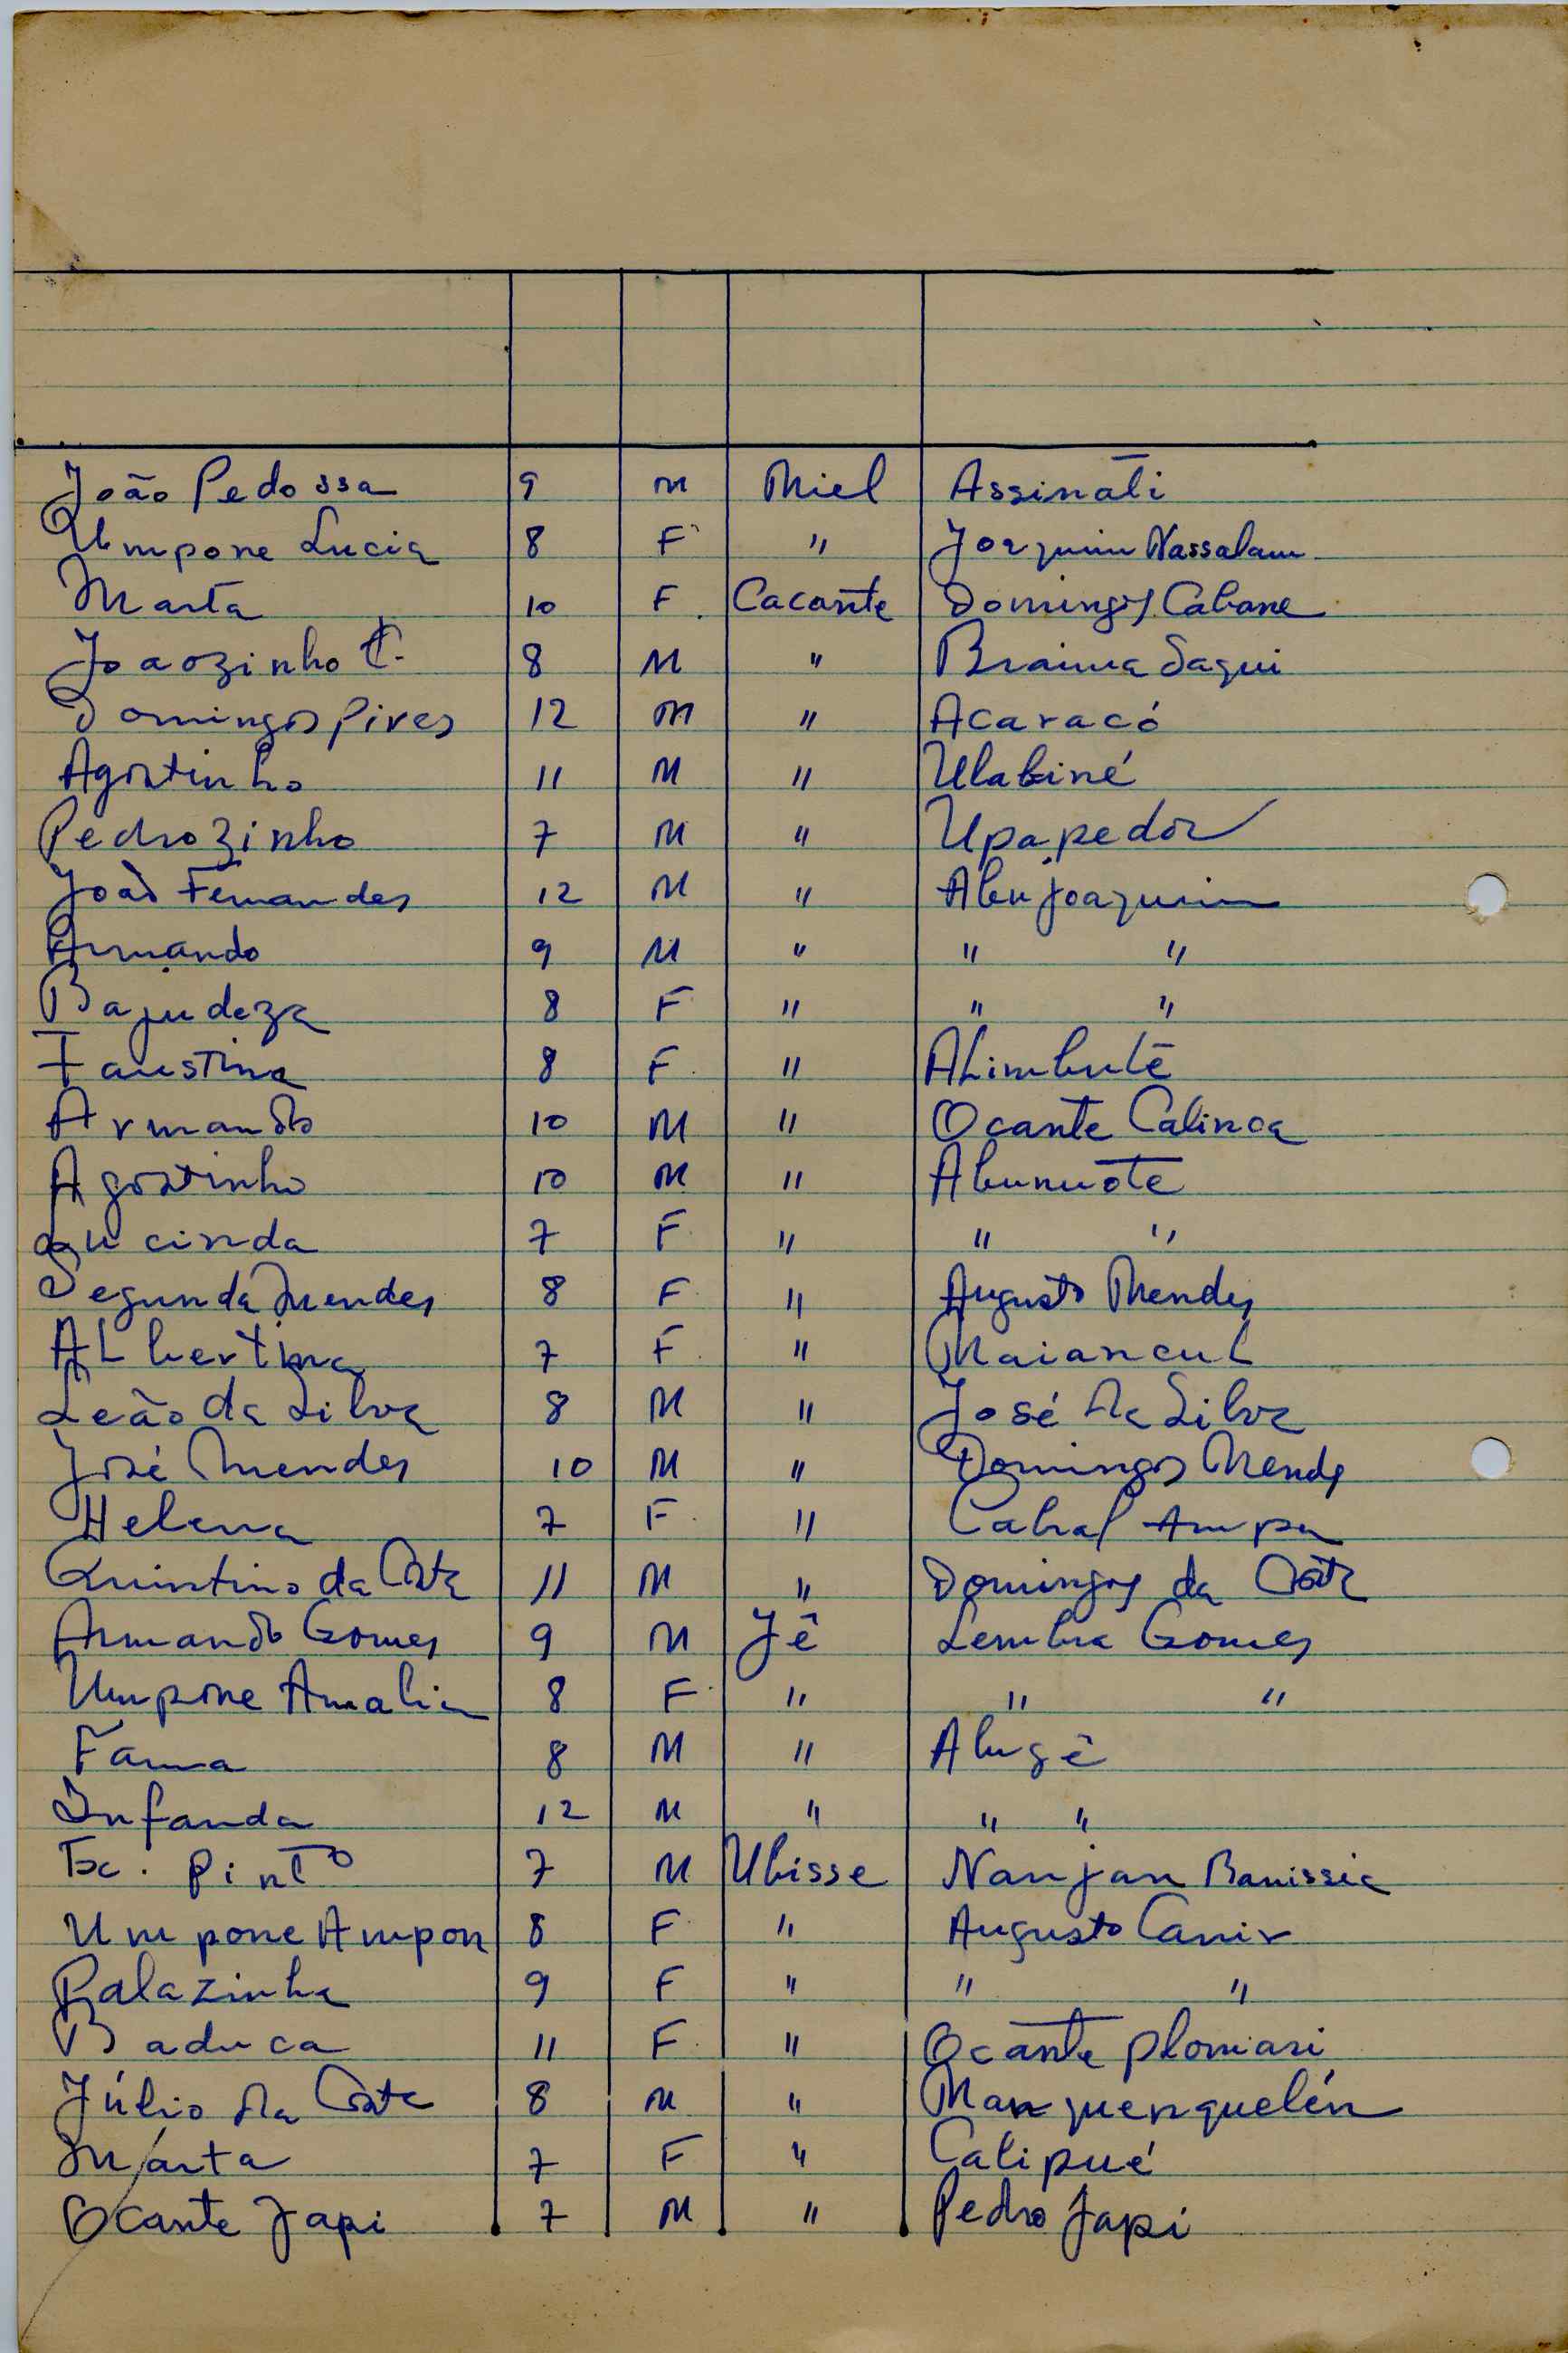 João Pedossa 9 M Miel Assinati
Umpone Lucia 8 F " Joaquim Nassalam
Marta 10 F Cacante Domingos Cabane
Joaozinho C. 8 M " Braima Sagui
Domingos Pires 12 M " Acaracó
Agostinho 11 M " Ulabiné
Pedrozinho 7 M " Upapedor
João Fernandes 12 M " Abu Joaquim
Armando 9 M " " "
Bajudeza 8 F " " "
Faustina 8 F " ALimbutê
Armando 10 M " Ocante Calinca
Agostinho 10 M " Abunuote
Lucinda 7 F " " "
Segunda Mendes 8 F " Augusto Mendes
ALbertina 7 F " Maiancul
Leão da Silva 8 M " José da Silva
José Mendes 10 M " Domingos Mendes
Helena 7 F " Cabral Ampa
Quintino da Costa 11 M " Domingos da Costa
Armando Gomes 9 M Jê Lembra Gomes
Umpone Amalia 8 F " " "
Fama 8 M " Abugê
Infanda 12 M " " "
Pinto 7 M Ubisse Nanjan Banissia
Umpone Ampon 8 F " Augusto Camir
Balazinha 9 F " " "
Baduca 11 F " Ocante Plomari
Júlio da Costa 8 M " Manquenquelén
Márta 7 F " Calipué
Ocante Japi 7 M " Pedro Japi